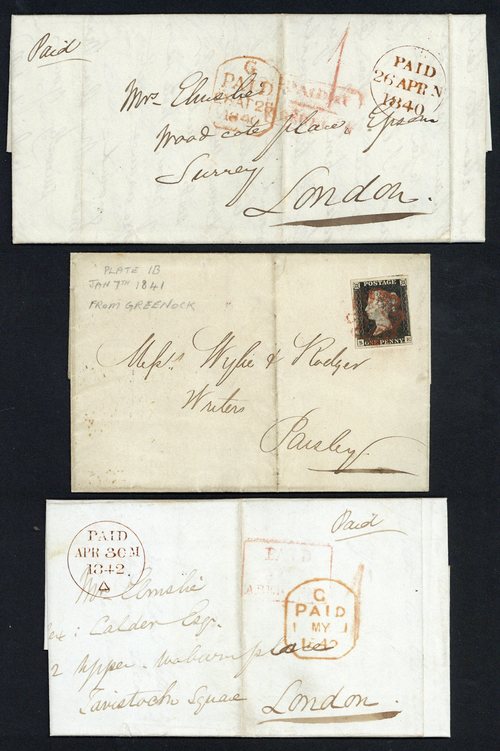 Paid
1
PAID
26 APR N
1840
G
PAID
28 AP 28
1840
PAID
Mrs Elmslie
Wood cote place, Epsom
Surrey
London.
PLATE 1B
JAN 7TH 1841
FROM GREENOCK
POSTAGE
ONE PENNY
Messrs Wylie & Rodger
Writers
Paisley
Paid
PAID
APR 30 M
1842.
PAID
1
G
PAID
1 MY 1
1842
Mrs Elmslie
Calder Esqr.
2 Upper Woburn place
Tavistock Square
London.